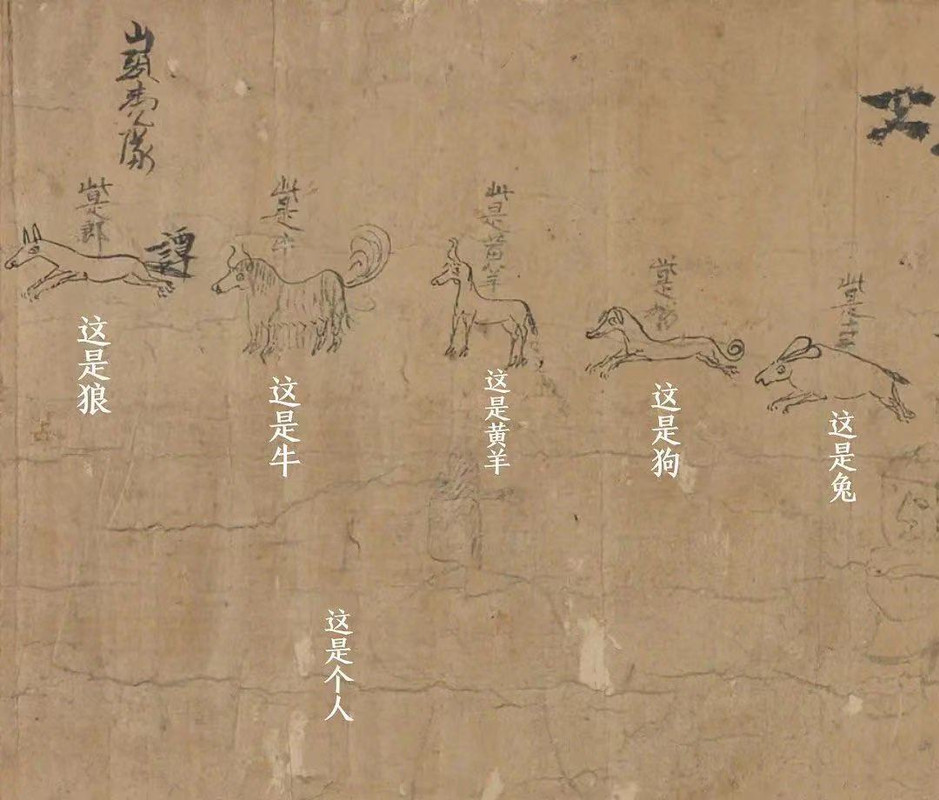 山頭
隊
此是郎
譚
此是牛
此是黄羊
此是狗
此是
这是狼
这是牛
这是黄羊
这是狗
这是兔
这是个人